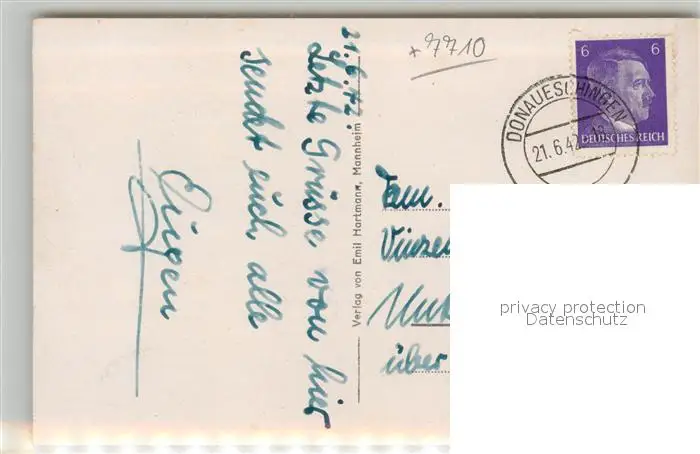 21.6.42.
Letzte Grüsse von hier
sendet euch alle
Eugen
Verlag von Emil Hartmann, Mannheim
*7710
6 6
DEUTSCHES REICH
DONAUESCHINGEN
21.6.42
Fam.
über
privacy protection
Datenschutz